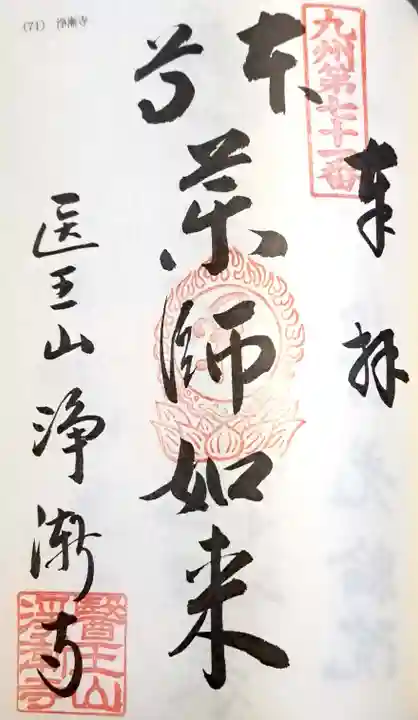 (71) 浄漸寺
九州第七十一番
奉拝
本尊
薬師如来
医王山浄漸寺
醫王山浄漸寺